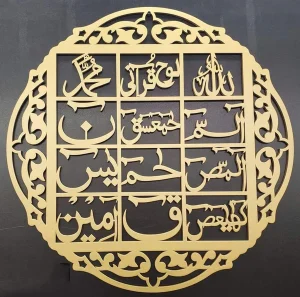 الله لوح قرآنی محمد
الم حمعسق ن
المص حم یس
کهیعص ق امین